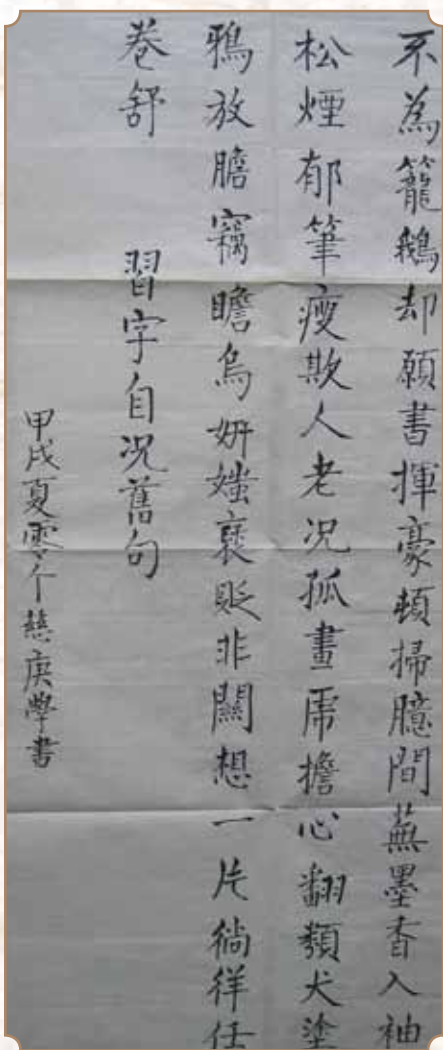 不為籠鵝却願書揮豪頓掃臆間蕪墨香入袖
松煙郁筆瘦欺人老況孤畫虎擔心翻類犬塗
鴉放膽竊瞻烏妍媸褒貶非關想一片徜徉任
卷舒
習字自況舊句
甲戌夏雲个慈庚學書